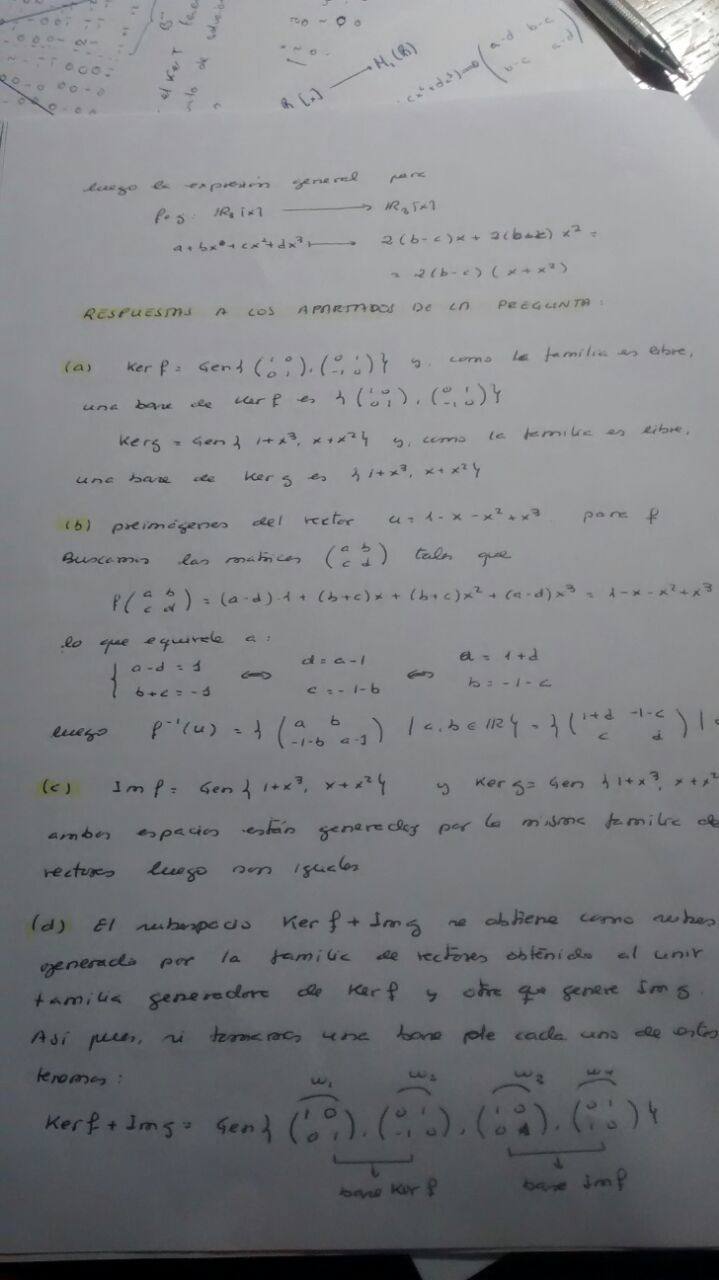 el Ker f
R[x] ⟶ M₂(R)
(a-d b-c
b-c a-d)
luego la expresión general para
f∘g: ℝ₃[x] ⟶ ℝ₃[x]
a+bx+cx²+dx³ ⟶ 2(b-c)x + 2(b-c)x² =
= 2(b-c)(x+x²)
RESPUESTAS A LOS APARTADOS DE LA PREGUNTA:
(a) Ker f = Gen{(1 0 / 0 1), (0 1 / -1 0)} y, como la familia es libre,
una base de Ker f es {(1 0 / 0 1), (0 1 / -1 0)}
Ker g = Gen{1+x³, x+x²} y, como la familia es libre,
una base de Ker g es {1+x³, x+x²}
(b) preimágenes del vector u = 1-x-x²+x³ para f
Buscamos las matrices (a b / c d) tales que
f(a b / c d) = (a-d)·1 + (b+c)x + (b+c)x² + (a-d)x³ = 1-x-x²+x³
lo que equivale a:
{ a-d = 1 ⟺ d = a-1 ⟺ a = 1+d
b+c = -1 c = -1-b b = -1-c
luego f⁻¹(u) = {(a b / -1-b a-1) | a, b ∈ ℝ} = {(1+d -1-c / c d) |
(c) Im f = Gen{1+x³, x+x²} y Ker g = Gen{1+x³, x+x²
ambos espacios están generados por la misma familia de
vectores luego son iguales
(d) El subespacio Ker f + Im g se obtiene como subes
generado por la familia de vectores obtenido al unir
familia generadora de Ker f y otra que genere Im g.
Así pues, si tomamos una base de cada uno de estos
tenemos:
w₁ w₂ w₃ w₄
Ker f + Im g = Gen{(1 0 / 0 1), (0 1 / -1 0), (1 0 / 0 1), (0 1 / 1 0)}
base Ker f base Im f